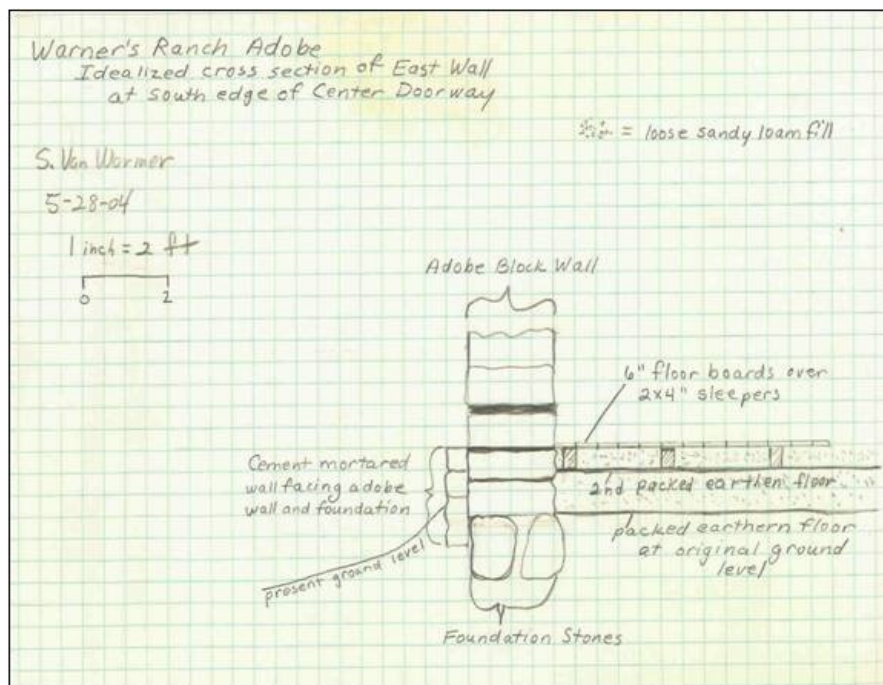 Warner's Ranch Adobe
Idealized cross section of East Wall
at south edge of Center Doorway
= loose sandy loam fill
S. Van Wormer
5-28-04
1 inch = 2 ft
0 2
Adobe Block Wall
6" floor boards over
2x4" sleepers
Cement mortared
wall facing adobe
wall and foundation
2nd packed earthen floor
packed earthern floor
at original ground
level
present ground level
Foundation Stones